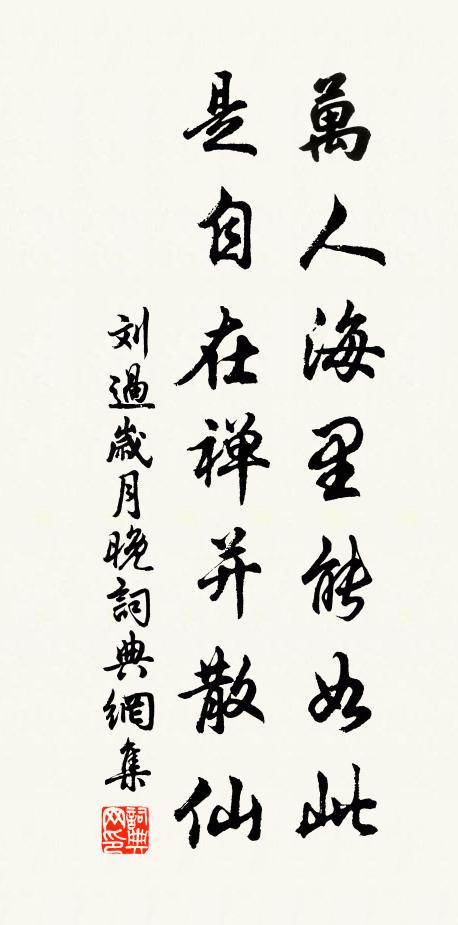 萬人海里能如此
是自在禅并散仙
刘過歲月晚詞典網集
詞典网印